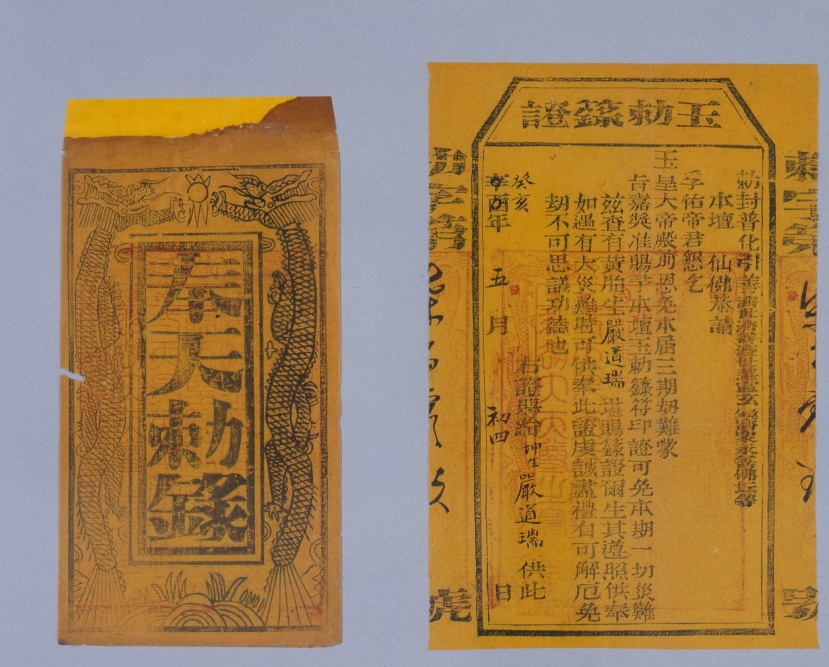 奉天勅籙
玉勅籙證
勅封普化引善
本壇 仙佛恭請
孚佑帝君懇乞
玉皇大帝殿前恩免本屆三期劫難蒙
旨嘉獎准賜于本壇玉勅籙符印證可免本期一切災難
茲查有黃胎生嚴道瑞 堪賜籙證爾生其遵照供奉
如遇有大災難時可供奉此證虔誠盡禮自可解厄免
劫不可思議功德也
右證賜給坤生嚴道瑞 供此
癸亥
年 五 月 初四 日
號
號